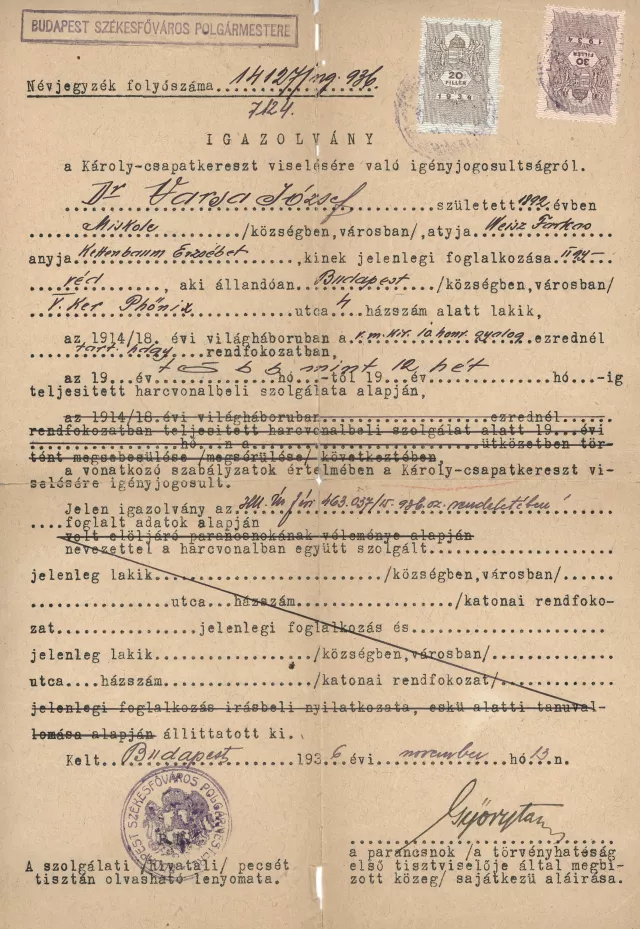 BUDAPEST SZÉKESFŐVÁROS POLGÁRMESTERE
20
FILLÉR
1934
30
FILLÉR
1934
Névjegyzék folyószáma 14127/ing. 936.
7124.
IGAZOLVÁNY
a Károly-csapatkereszt viselésére való igényjogosultságról.
Dr Varsa József született 1892 évben
Miskolc /községben,városban/,atyja Weisz Farkas
anyja Kettenbaum Erzsébet ,kinek jelenlegi foglalkozása ügy-
véd , aki állandóan Budapest /községben,városban/
V. Ker Phőnix utca 4 házszám alatt lakik,
az 1914/18. évi világháboruban a v.m. kir. 10. honv. gyalog ezrednél
tart. hdgy. rendfokozatban,
több mint 12 hét
az 19...év...hó.-tól 19...év...hó.-ig
teljesitett harcvonalbeli szolgálata alapján,
az 1914/18.évi világháboruban...ezrednél
rendfokozatban teljesitett harcvonalbeli szolgálat alatt 19...évi
...hó...n a...ütközetben tör-
tént megsebesülése /megsérülése/ következtében,
a vonatkozó szabályzatok értelmében a Károly-csapatkereszt vi-
selésére igényjogosult.
Jelen igazolvány az 463.037/ 936.sz. rendeletében
foglalt adatok alapján
volt elöljáró parancsnokának véleménye alapján
nevezettel a harcvonalban együtt szolgált
jelenleg lakik.../községben,városban/
...utca...házszám.../katonai rendfoko-
zat...jelenlegi foglalkozás és
jelenleg lakik.../községben,városban/
utca...házszám.../katonai rendfokozat/
jelenlegi foglalkozás irásbeli nyilatkozata, eskü alatti tanuval-
lomása alapján állittatott ki.
Kelt Budapest 1936 évi november hó 13 n.
BUDAPEST SZÉKESFŐVÁROS POLGÁRMESTERE
A szolgálati /hivatali/ pecsét
tisztán olvasható lenyomata.
a parancsnok /a törvényhatóság
első tisztviselője által megbi-
zott közeg/ sajátkezü aláirása.